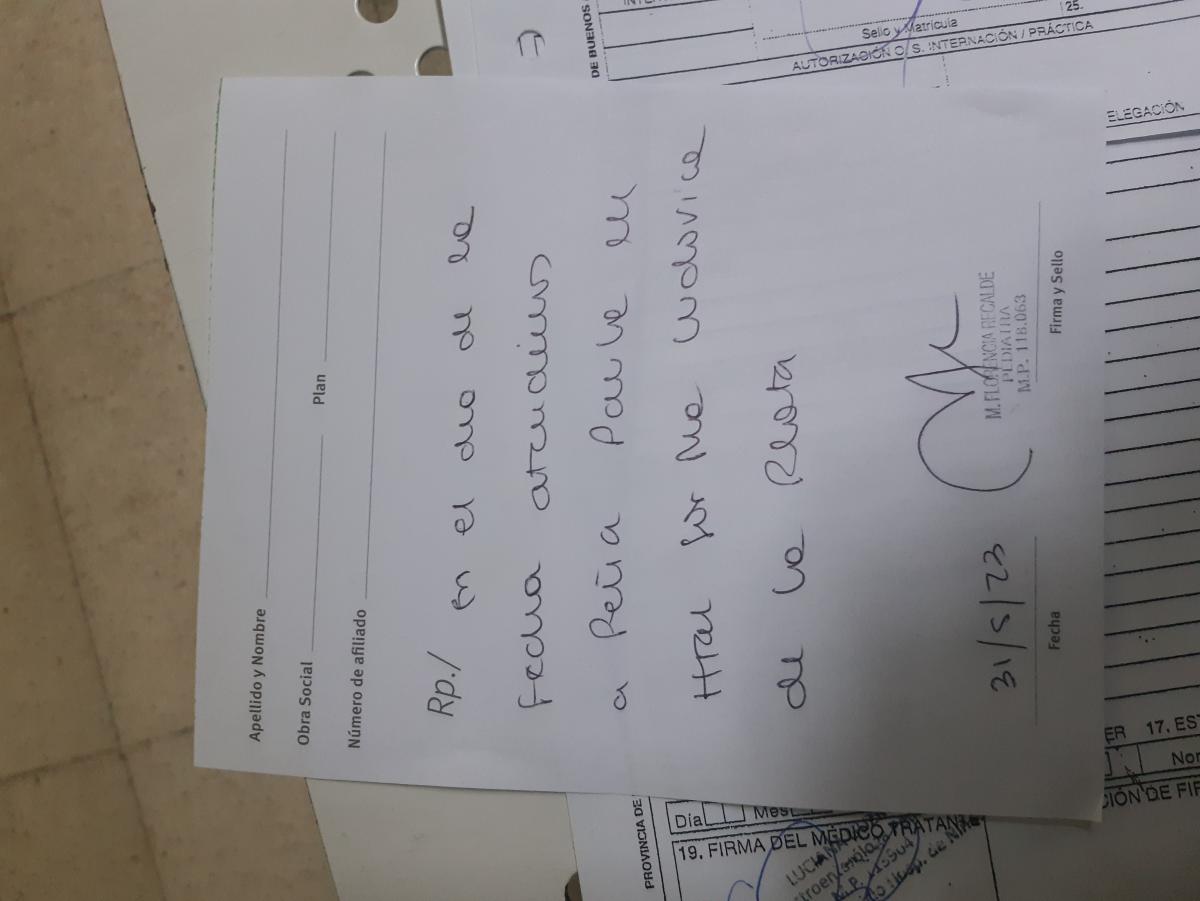 Apellido y Nombre
Obra Social Plan
Número de afiliado
Rp./
en el dia de la
fecha atendimos
a Peña Paule en
Htal Sor Ma Ludovica
de La Plata
31/5/23
M. FLORENCIA RECALDE
PEDIATRA
M.P. 118.063
Fecha Firma y Sello
DE BUENOS
Sello y Matrícula
25.
AUTORIZACIÓN O. S. INTERNACIÓN / PRÁCTICA
ELEGACIÓN
PROVINCIA DE
Día Mes
19. FIRMA DEL MÉDICO TRATAN
17. ES
CIÓN DE FIR